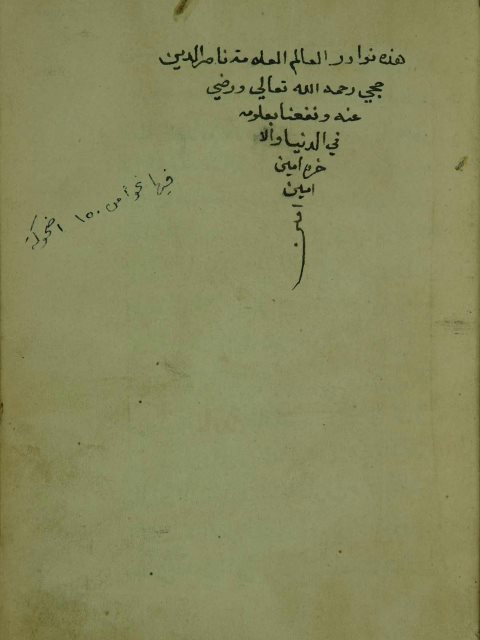 هذه نوادر العالم العلامة ناصر الدين
جحي رحمه الله تعالي ورضي
عنه ونفعنا بعلومه
في الدنيا والا
خره امين
امين
امين
فيها نحو من ١٥٠ اضحوكة